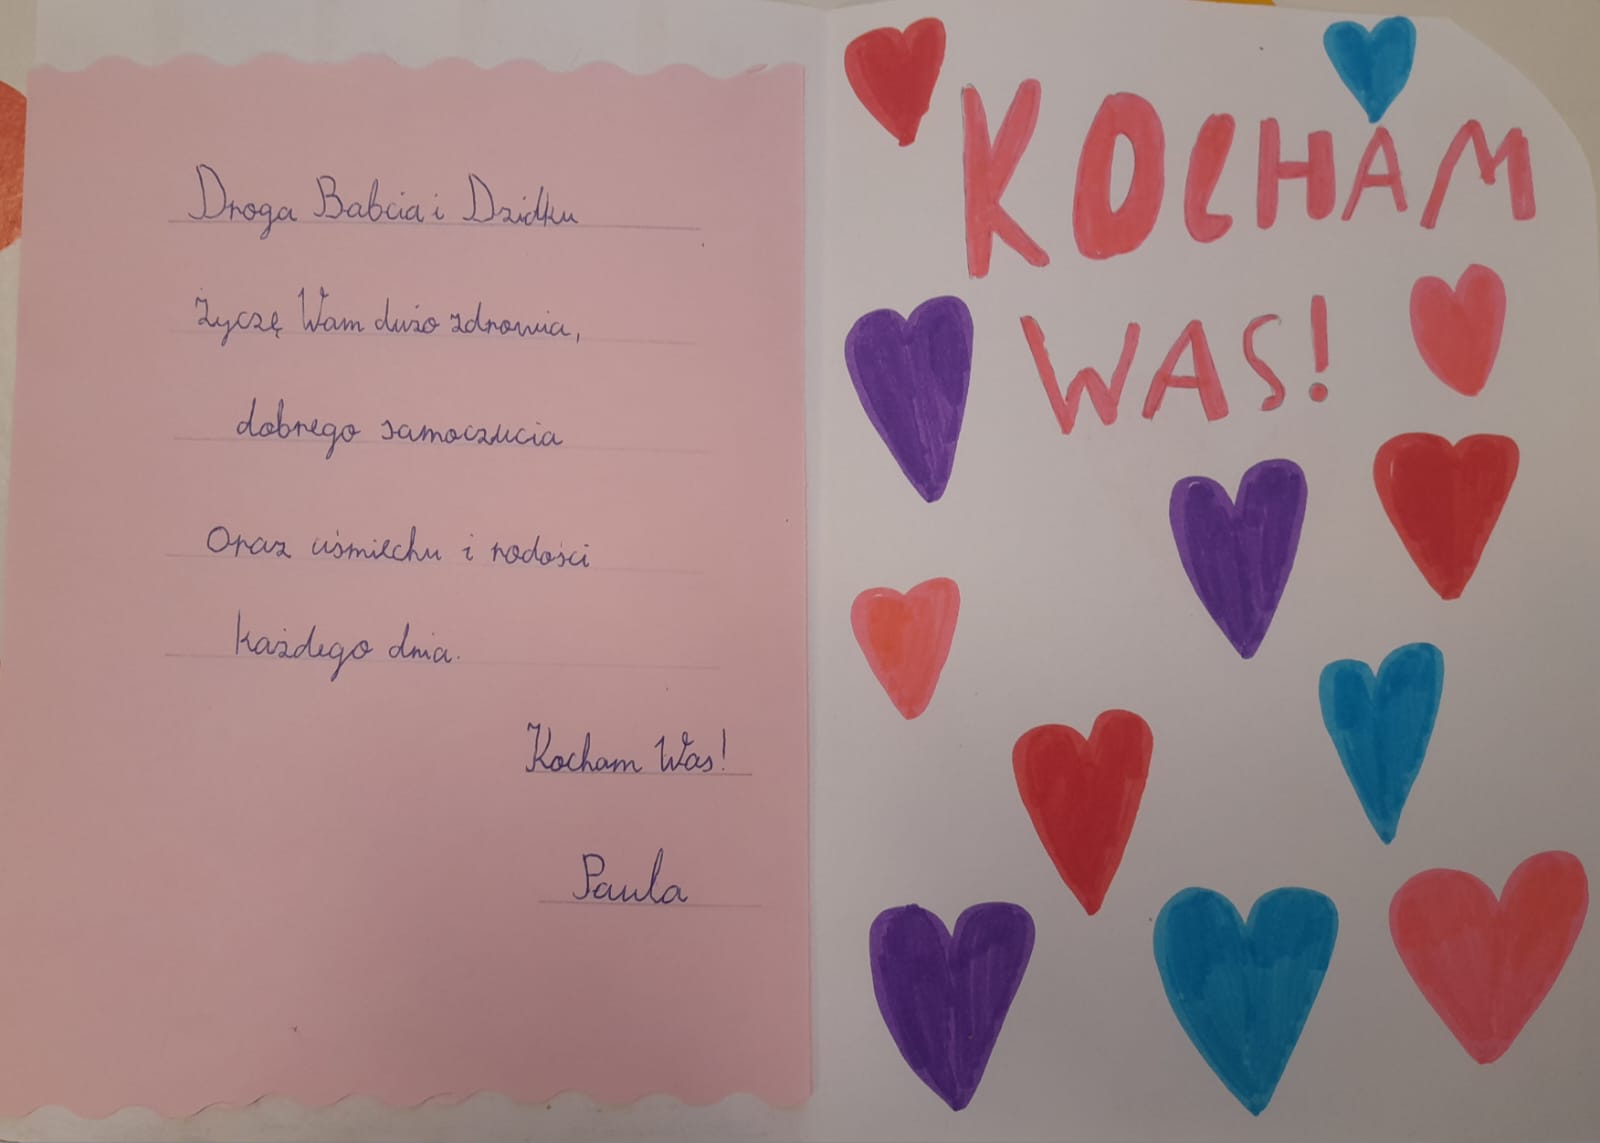 Droga Babcia i Dzidku
Życzę Wam dużo zdrowia,
dobrego samoczucia
Oraz uśmiechu i radości
każdego dnia.
Kocham Was!
Paula
KOCHAM
WAS!